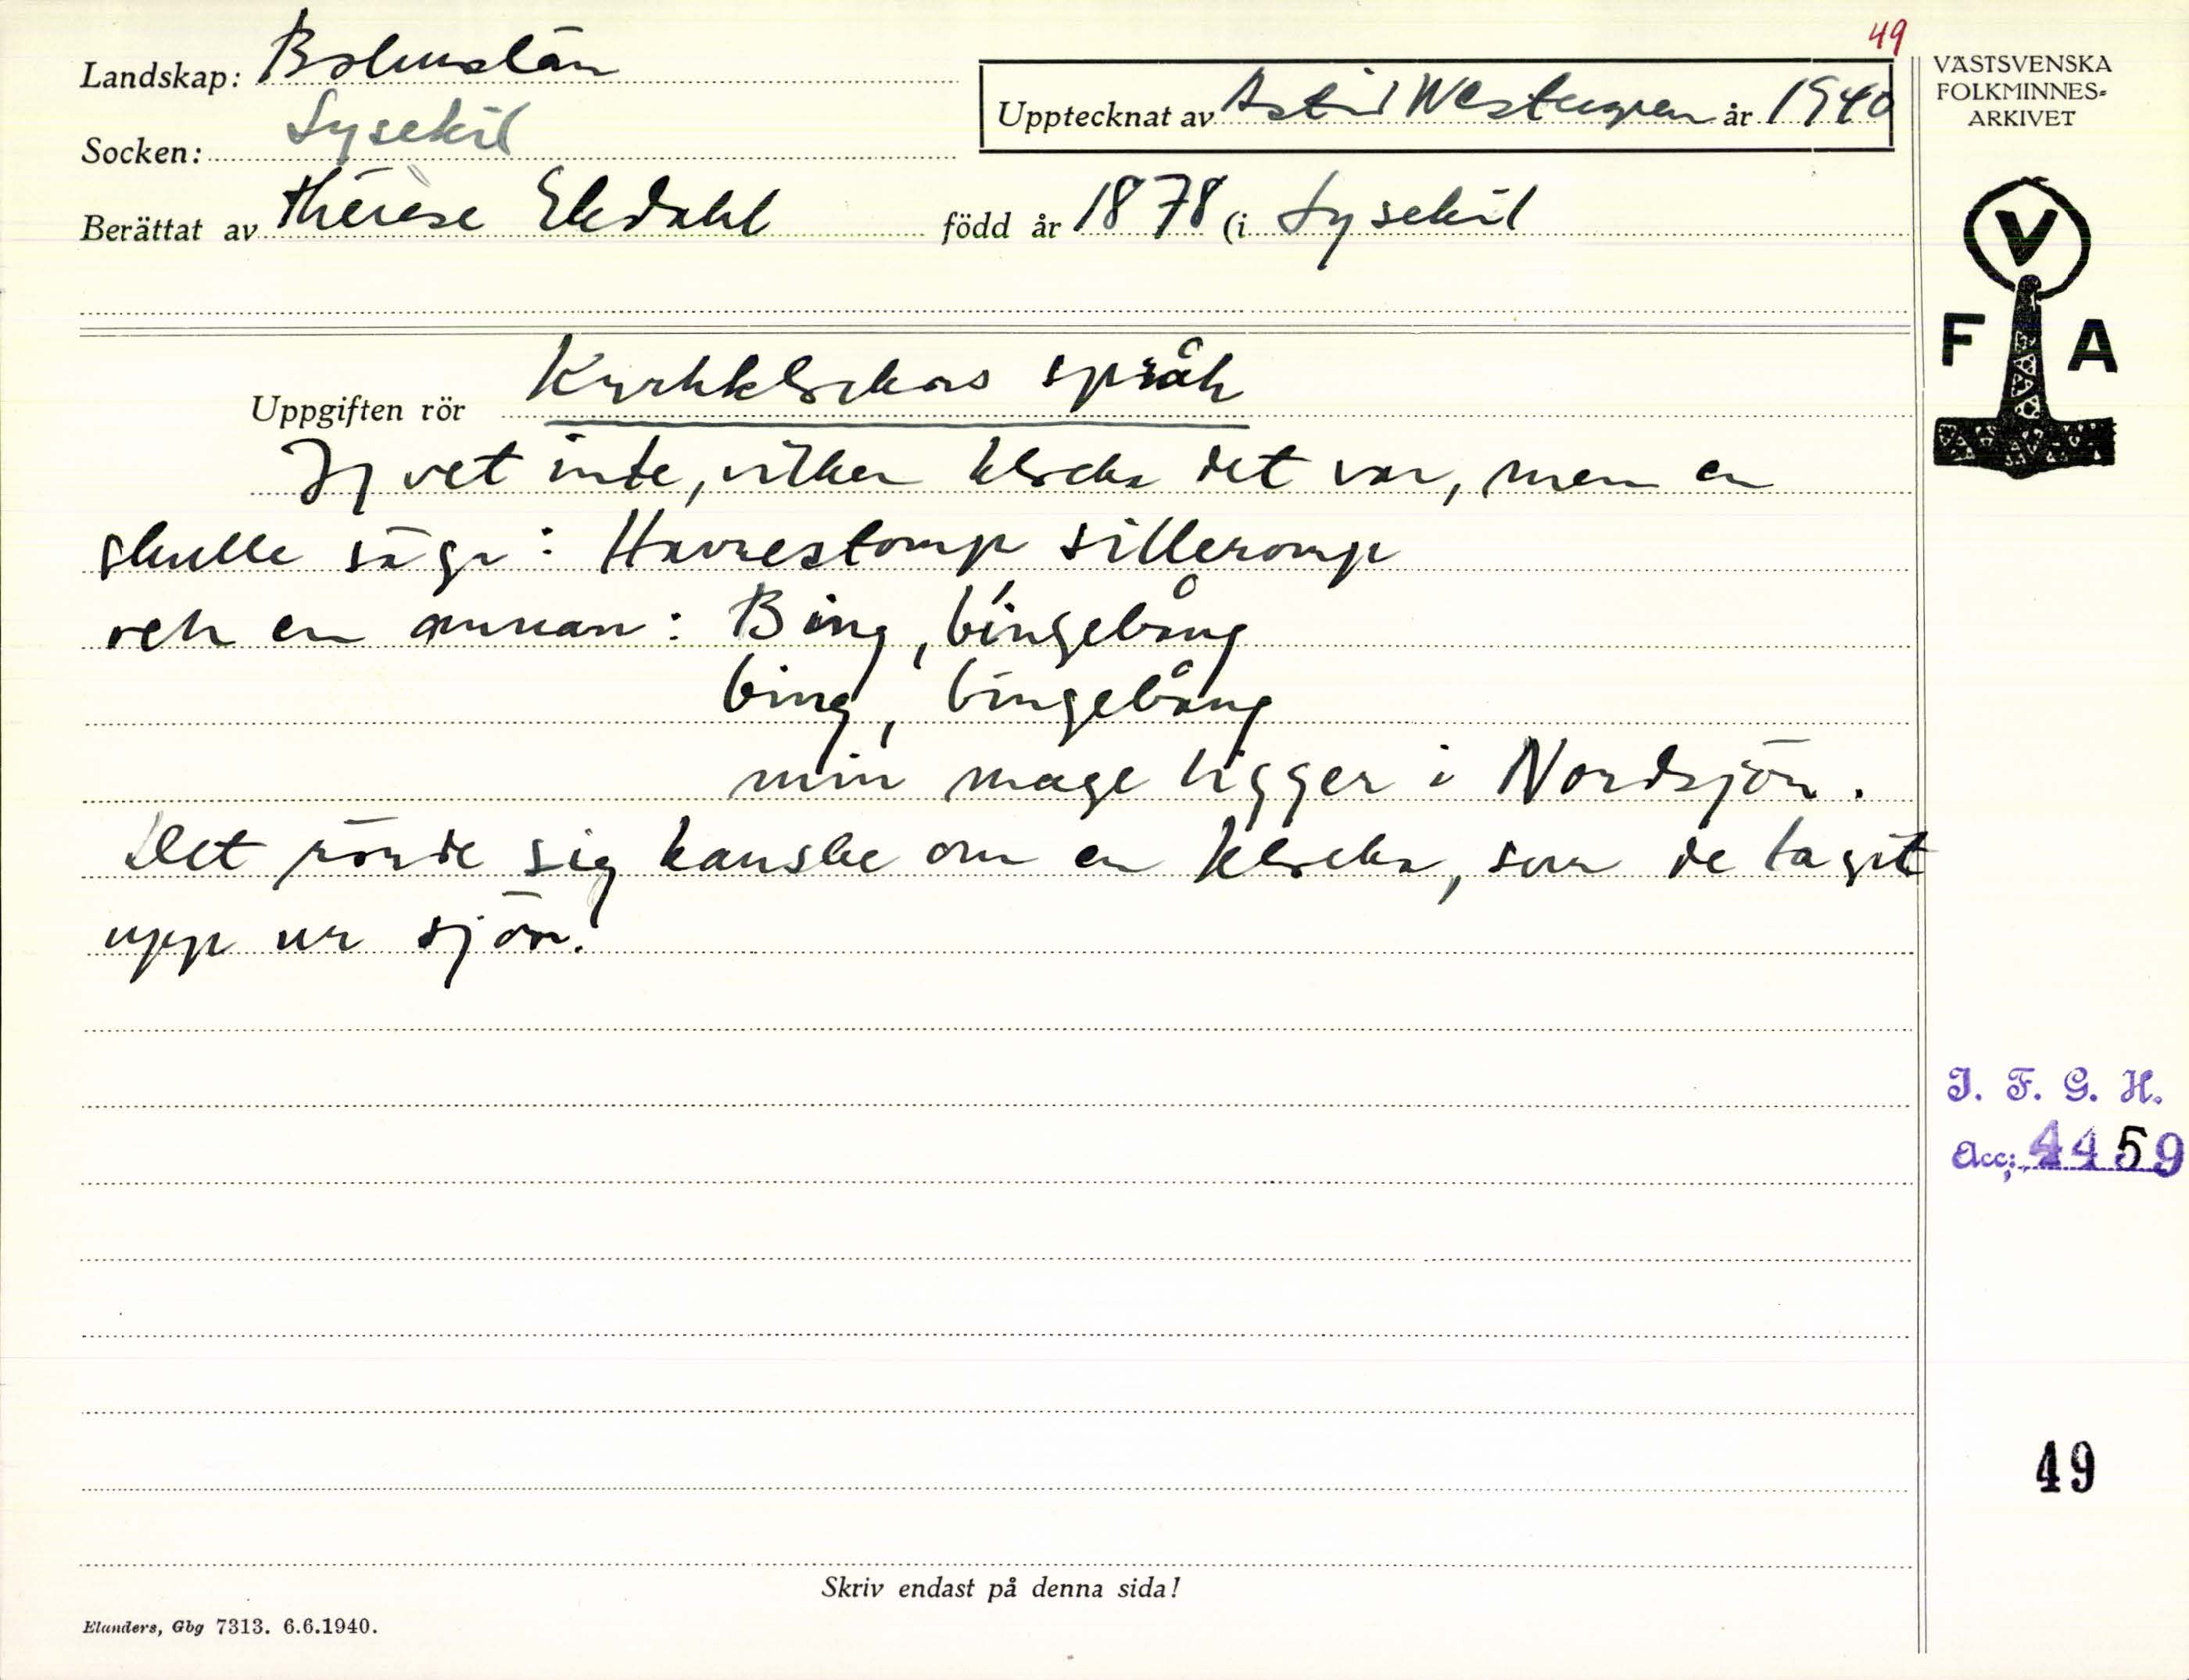 49
Landskap: Bohuslän
Upptecknat av Astrid Westergren år 1940
Socken: Lysekil
Berättat av Thérèse Ekdahl född år 1878 (i Lysekil
VÄSTSVENSKA
FOLKMINNES-
ARKIVET
V
F A
Uppgiften rör Kyrkklockors språk
Jag vet inte, vilken klocka det var, men en
skulle säga: Havrestomp silleromp
och en annan: Bing, bingebång
bing, bingebång
min mage ligger i Nordsjön.
Det rörde sig kanske om en klocka, som de tagit
upp ur sjön.
I. F. G. H.
Acc: 4459
49
Skriv endast på denna sida!
Elanders, Gbg 7313. 6.6.1940.